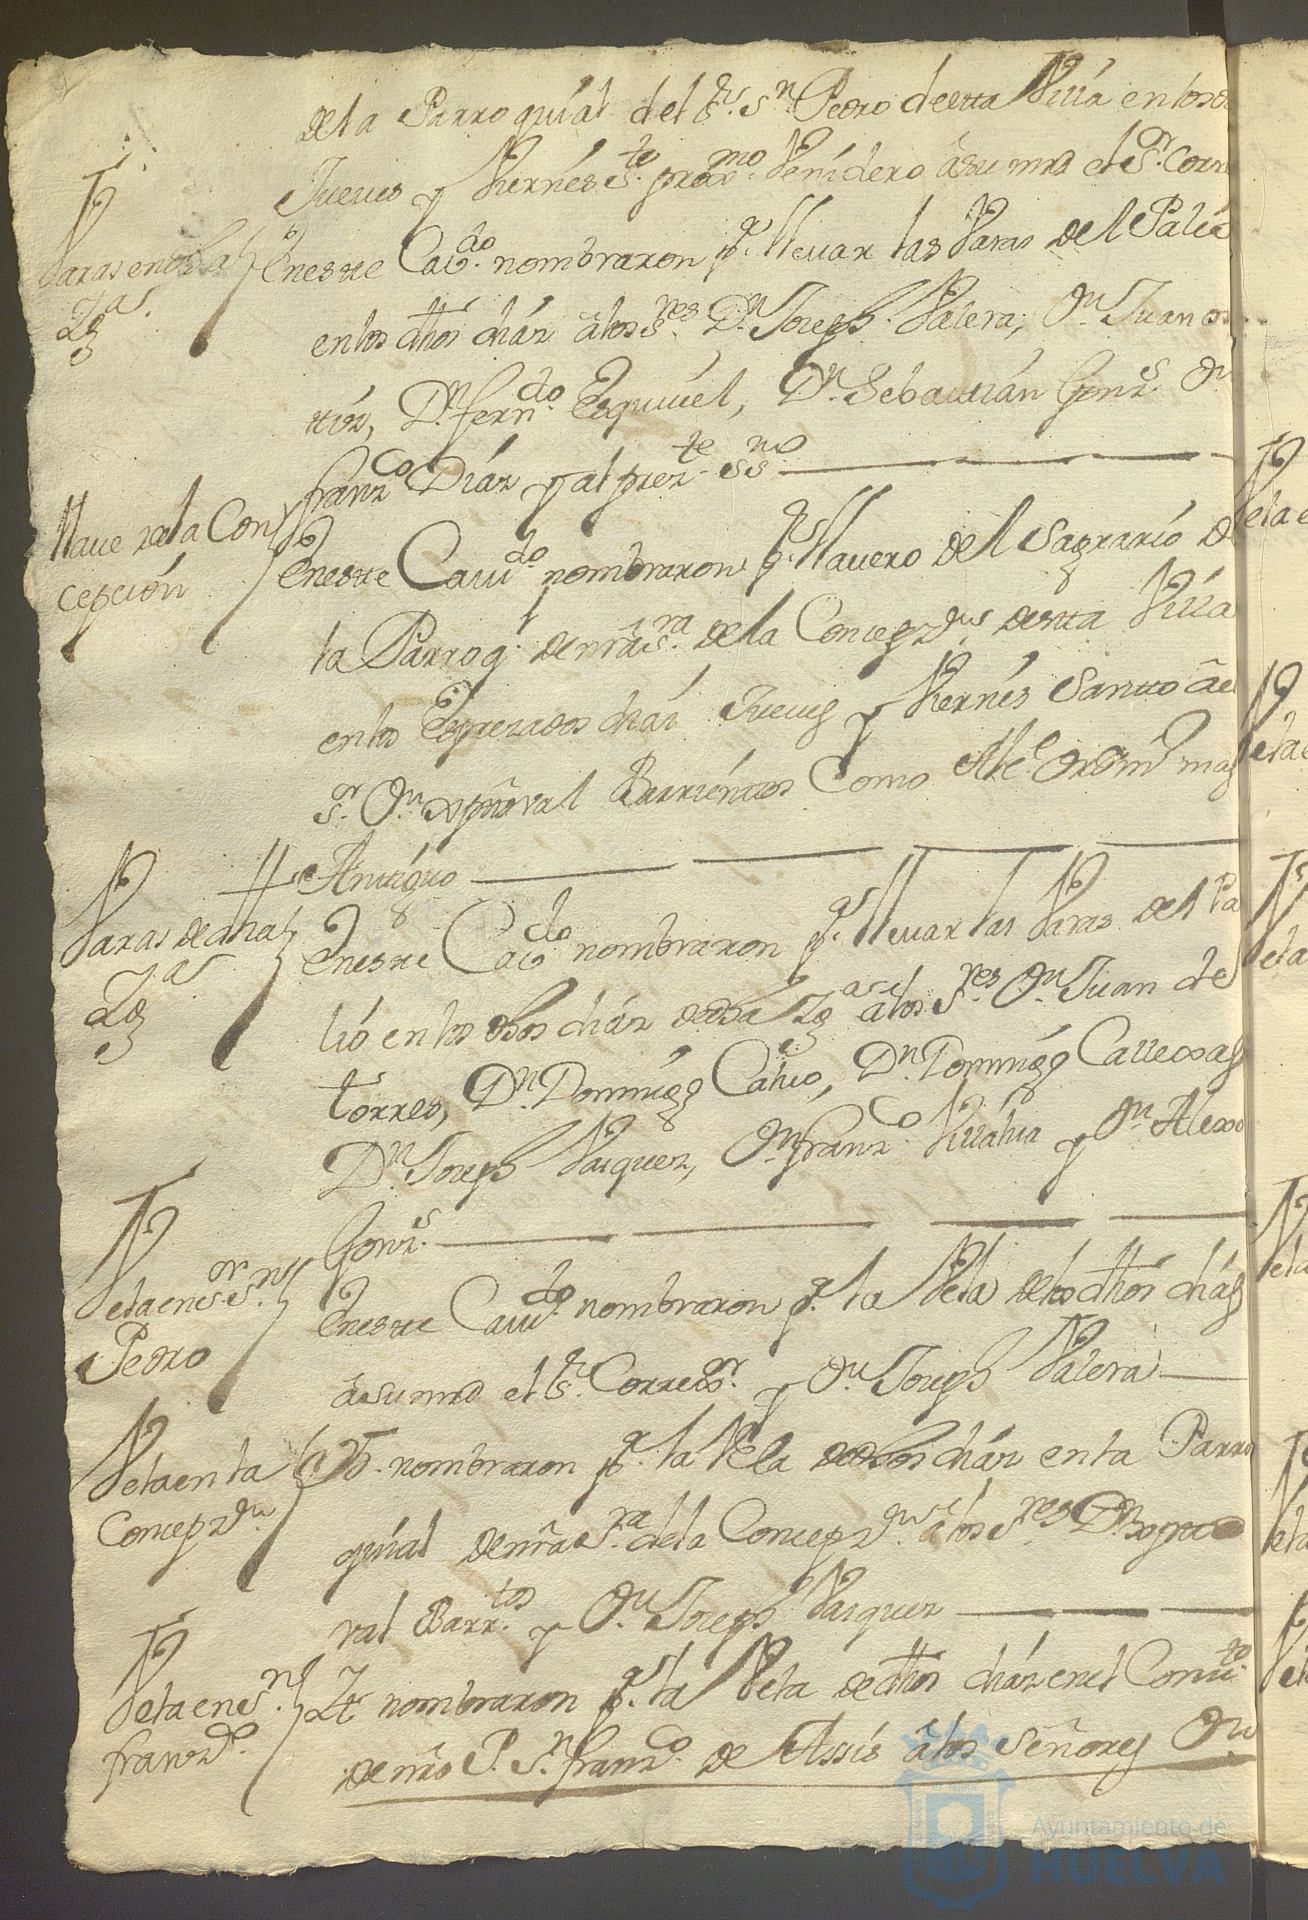 de la Parroquial del Sr. Sn. Pedro de esta Villa en los d
Jueves y Viernes Sto. proxmo. Venidero â su mrd el Sr. Corr
Varas en dha
Yga.
En este Cavdo. nombraron pa. llevar las Varas del Palio
en los dhos dias â los Sres. Dn. Joseph Valera, Dn. Juan
tiz, Dn. Ferndo. Esquivel, Dn. Sebastian Gonzs. Dn
Franco. Diaz y al preste. ssno
Llave de la Con
cepcion
En este Cavdo. nombraron pr. llavero del Sagrario de
la Parroq. de nra Sra. de la Concepzon. desta Villa
en los Expresados dias Jueves y Viernes Santto âl
Sr. Dn. Xptoval Barrientos Como Alce. Ordino mas
Antiguo
Varas de dha
Yga
En este Cavdo. nombraron pa. llevar las Varas del Pa
lio en los dhos dias de dha Yga. â los Sres. Dn. Juan de
Torres, Dn. Domingo Calvo, Dn. Domingo Callexas
Dn. Joseph Vasquez, Dn. Franco. Villalva y Dn. Alexo
Gonzs.
Vela en el Sor. Sn.
Pedro
En este Cavdo. nombraron pa. la Vela de los dhos dias
â su mrd el Sr. Corredor. y Dn. Joseph Valera
Vela en la
Concepzon.
Yt. nombraron pa. la Vela de dhos dias en la Parro
quial de nra Sra. de la Concepzon. â los Sres. Dn. Xpto
val Barrtos. y Dn. Joseph Vasquez
Vela en Sn.
Franzco.
Yt nombraron pa. la Vela de dhos dias en el Convto.
de nro P. Sn. Franco. de Assis â los Señores Dn
Ayuntamiento de
HUELVA